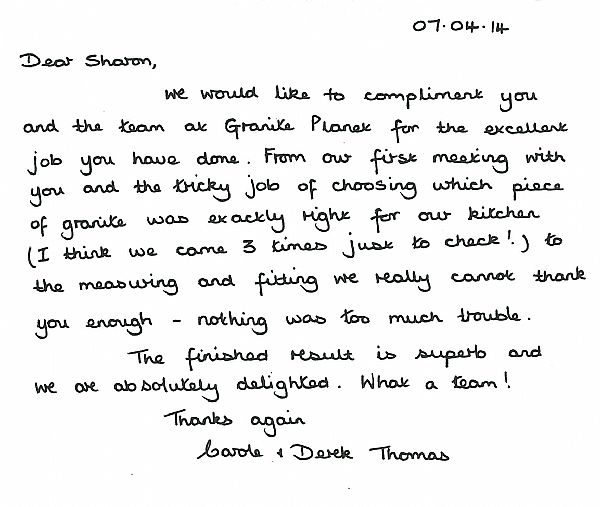 07.04.14
Dear Sharon,
we would like to compliment you
and the team at Granite Planet for the excellent
job you have done. From our first meeting with
you and the tricky job of choosing which piece
of granite was exactly right for our kitchen
(I think we came 3 times just to check!) to
the measuring and fitting we really cannot thank
you enough - nothing was too much trouble.
The finished result is superb and
we are absolutely delighted. What a team!
Thanks again
Carole + Derek Thomas